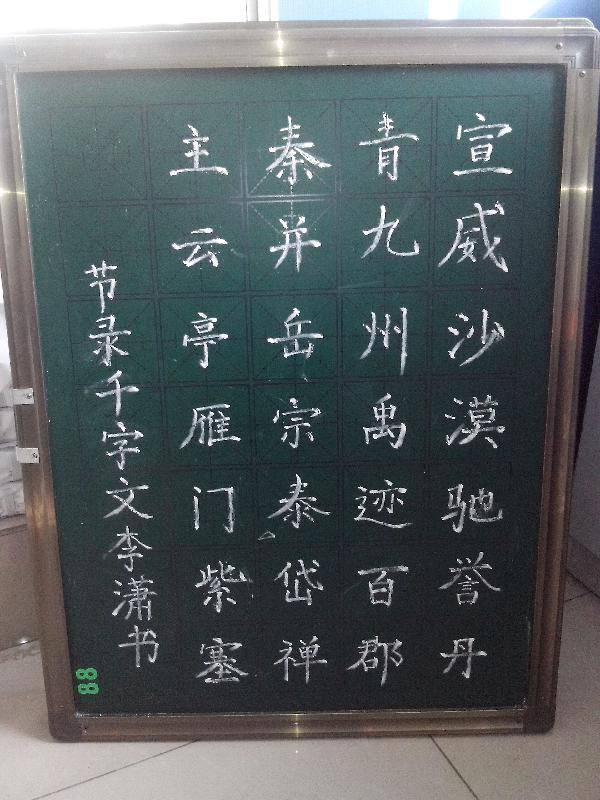 宣威沙漠驰誉丹
青九州禹迹百郡
秦并岳宗泰岱禅
主云亭雁门紫塞
节录千字文李潇书
88